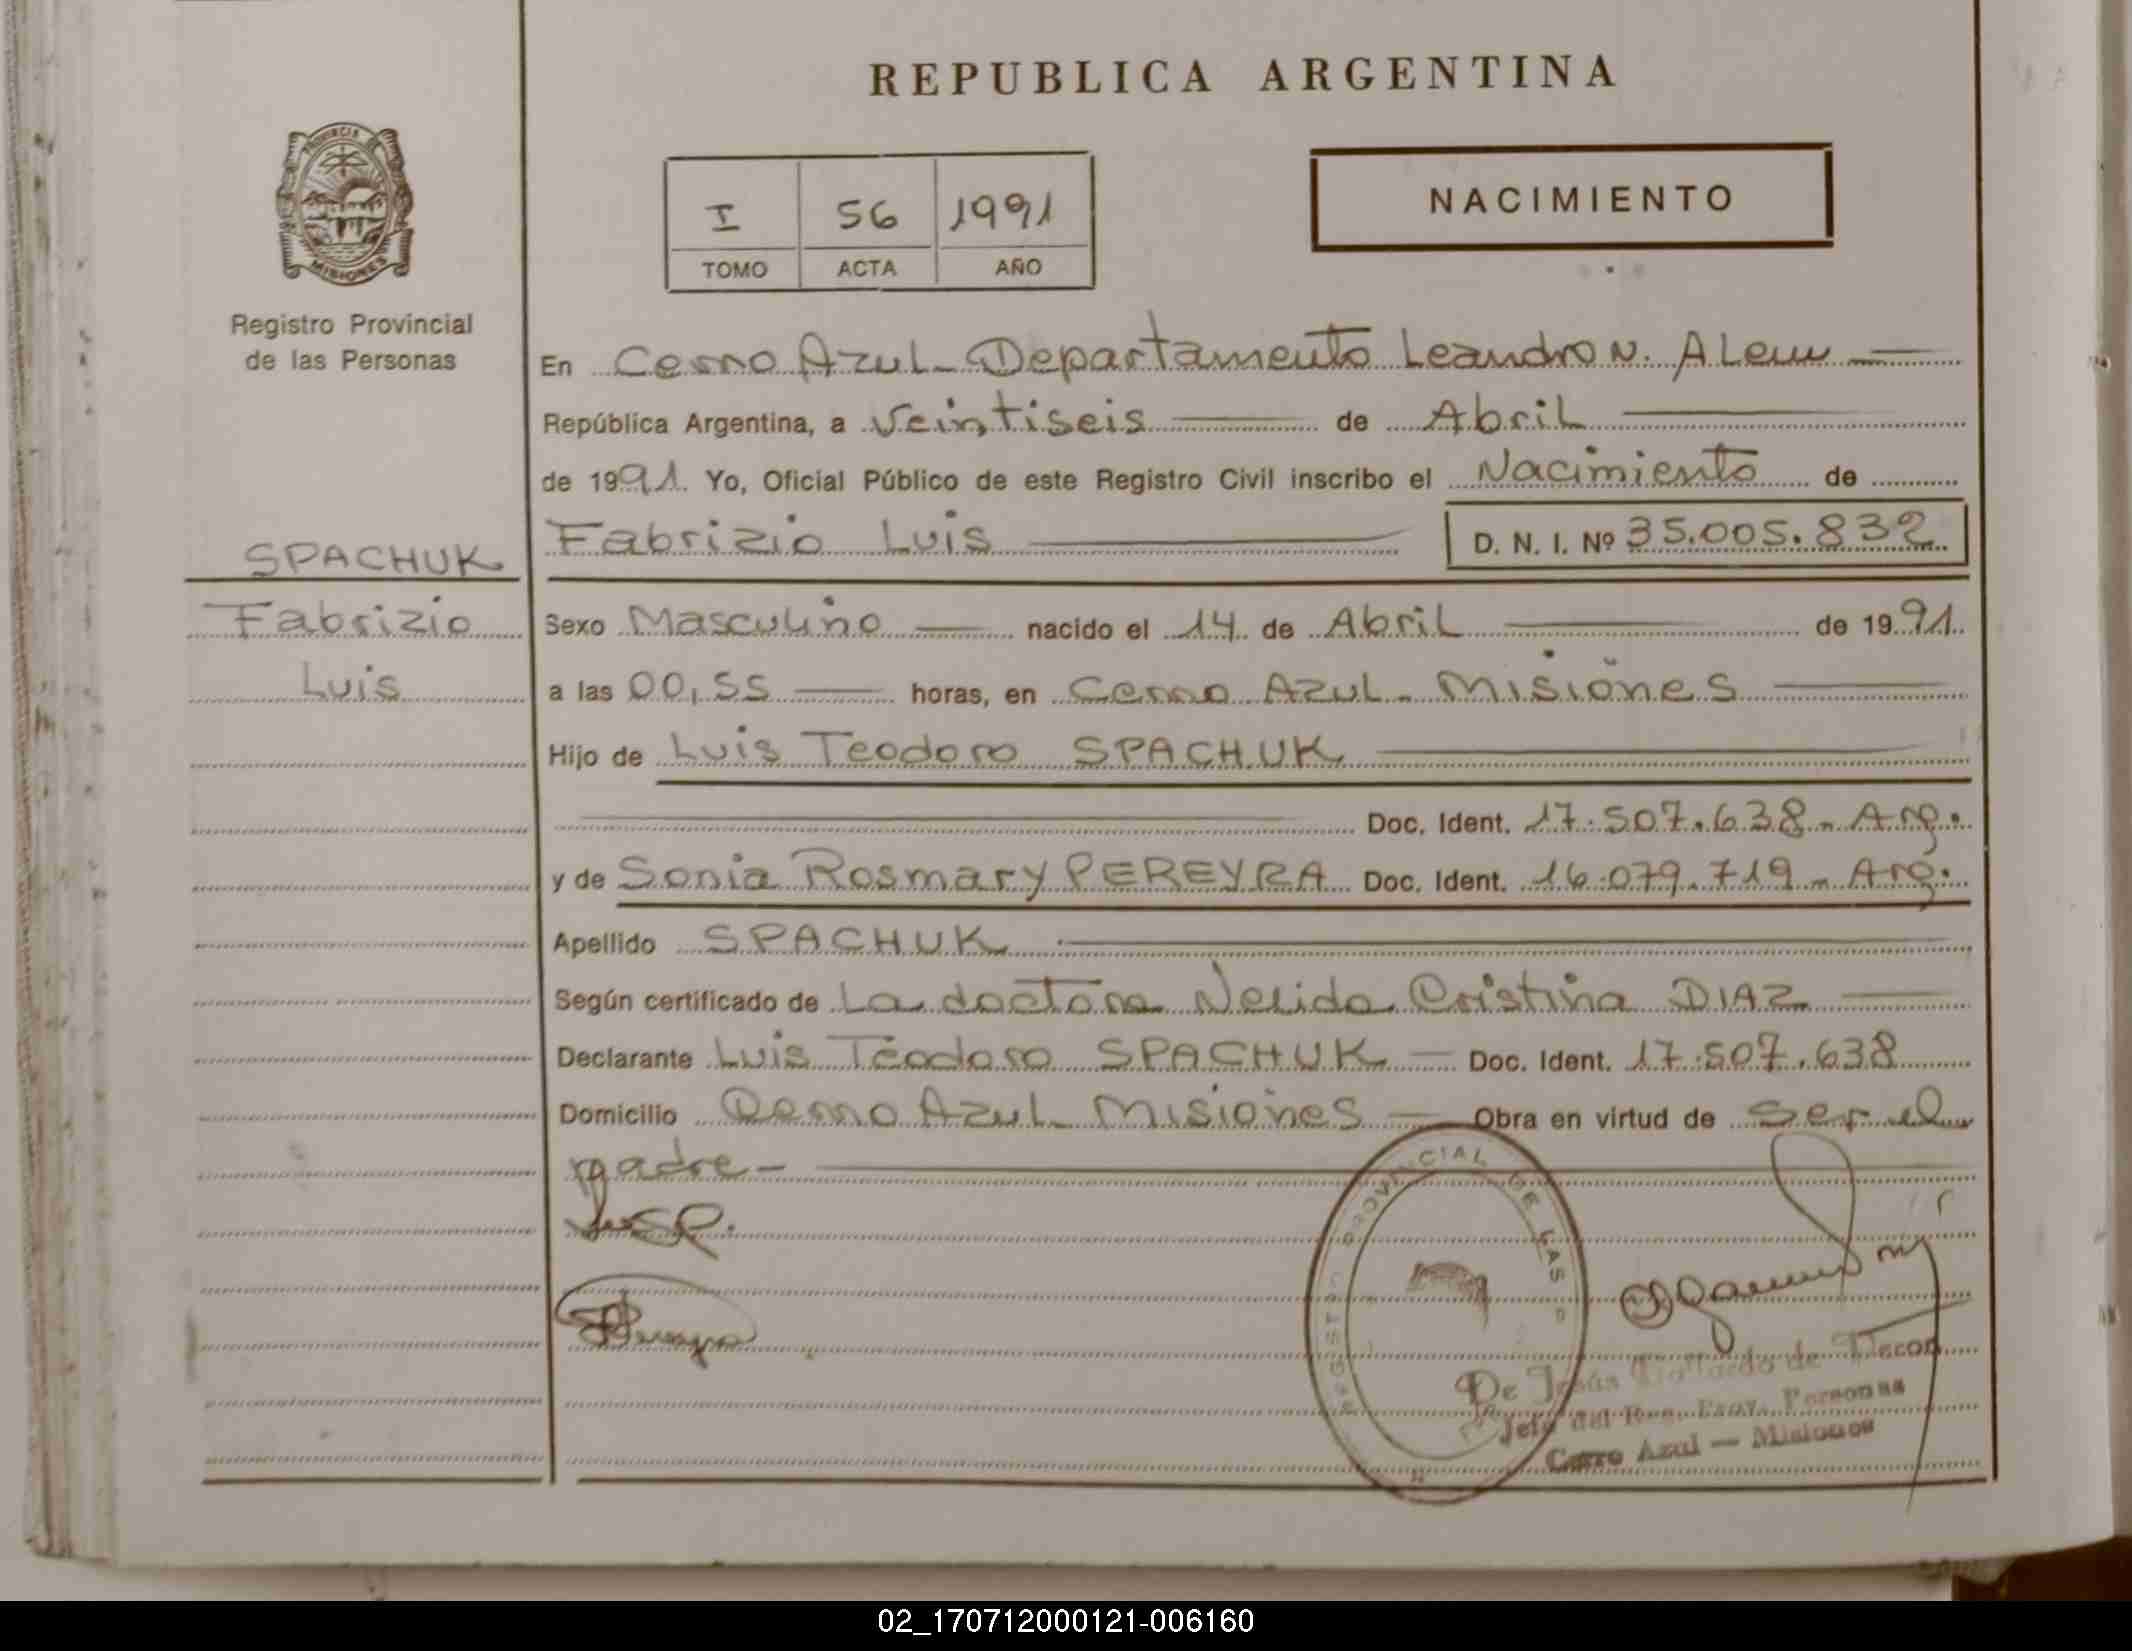 REPUBLICA ARGENTINA
PROVINCIA DE
MISIONES
Registro Provincial
de las Personas
I 56 1991
TOMO ACTA AÑO
NACIMIENTO
En Cerro Azul - Departamento Leandro N. Alem —
República Argentina, a Veintiseis — de Abril —
de 1991. Yo, Oficial Público de este Registro Civil inscribo el Nacimiento de
Fabrizio Luis — D. N. I. Nº 35.005.832
SPACHUK
Fabrizio
Luis
Sexo Masculino — nacido el 14 de Abril — de 1991.
a las 00,55 — horas, en Cerro Azul - Misiones —
Hijo de Luis Teodoro SPACHUK —
— Doc. Ident. 17.507.638 - Arg.
y de Sonia Rosmary PEREYRA Doc. Ident. 16.079.719 - Arg.
Apellido SPACHUK —
Según certificado de La doctora Nelida Cristina DIAZ —
Declarante Luis Teodoro SPACHUK — Doc. Ident. 17.507.638
Domicilio Cerro Azul - Misiones — Obra en virtud de ser el
padre - —
REGISTRO PROVINCIAL DE LAS P
De Jesús Gallardo de
Jefe del Reg. Prov. Personas
Cerro Azul — Misiones
02_170712000121-006160